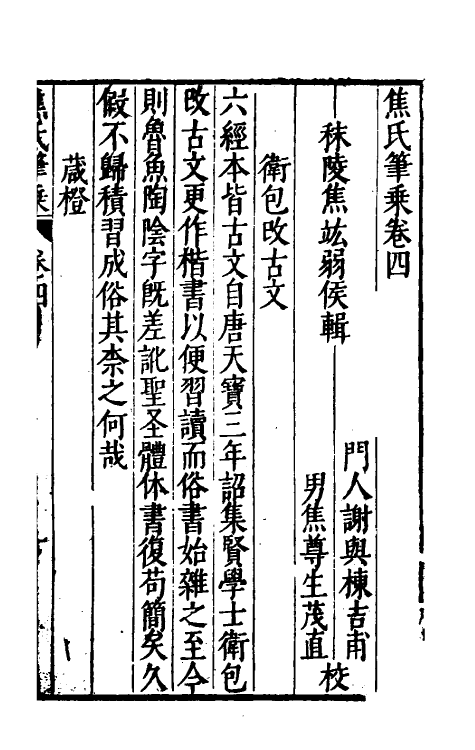 焦氏筆乗卷四
秣陵焦竑弱侯輯
門人謝與棟吉甫
男焦尊生茂直
校
衛包改古文
六經本皆古文自唐天寶三年詔集賢學士衛包
改古文更作楷書以便習讀而俗書始雜之至今
則魯魚陶陰字旣差訛聖圣體休書復苟簡矣久
假不歸積習成俗其柰之何哉
葴橙
焦氏筆乗
卷四